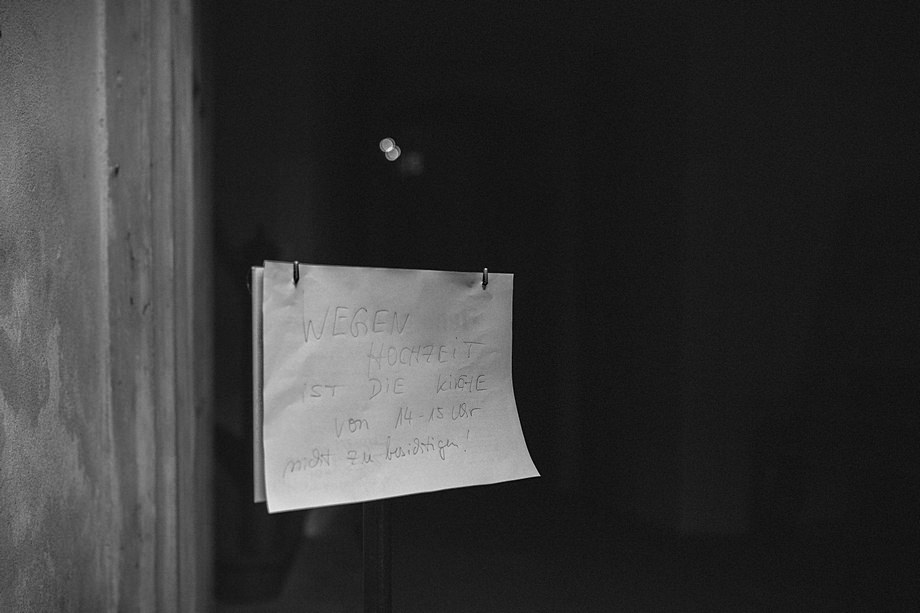 WEGEN
HOCHZEIT
IST DIE KIRCHE
von 14-15 Uhr
nicht zu besichtigen!